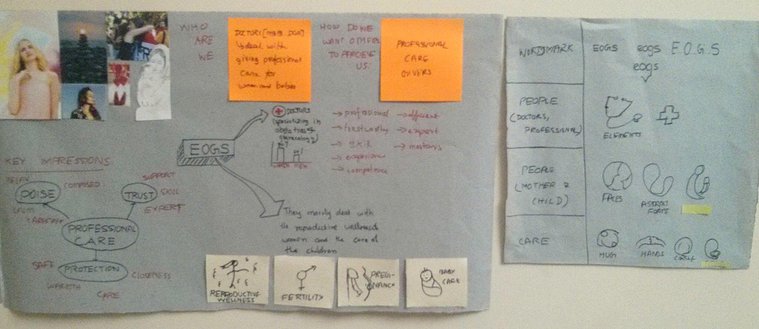 WHO
ARE
WE
DOCTORS
deal with
giving professional
care for
women and babies
HOW DO WE
WANT OTHERS
TO PERCEIVE
US
PROFESSIONAL
CARE
GIVERS
EOGS
DOCTORS
(specializing in
→ professional
→ trustworthy
→ skill
→ experience
→ competence
→ efficient
→ expert
KEY IMPRESSIONS
POISE
COMPOSED
CALM
SUPPORT
TRUST
SKILL
EXPERT
PROFESSIONAL
CARE
PROTECTION
SAFE
WARMTH
CARE
CLOSENESS
They mainly deal with
the reproductive wellness of
women and the care of
the children
REPRODUCTIVE
WELLNESS
FERTILITY
PREG-
NANCY
BABY
CARE
WORDMARK
EOGS eogs E.O.G.S
eogs
PEOPLE
(DOCTORS,
PROFESSIONAL)
ELEMENTS
PEOPLE
(MOTHER &
CHILD)
FACES
ABSTRACT
FORMS
CARE
HUG
HANDS
CIRCLE